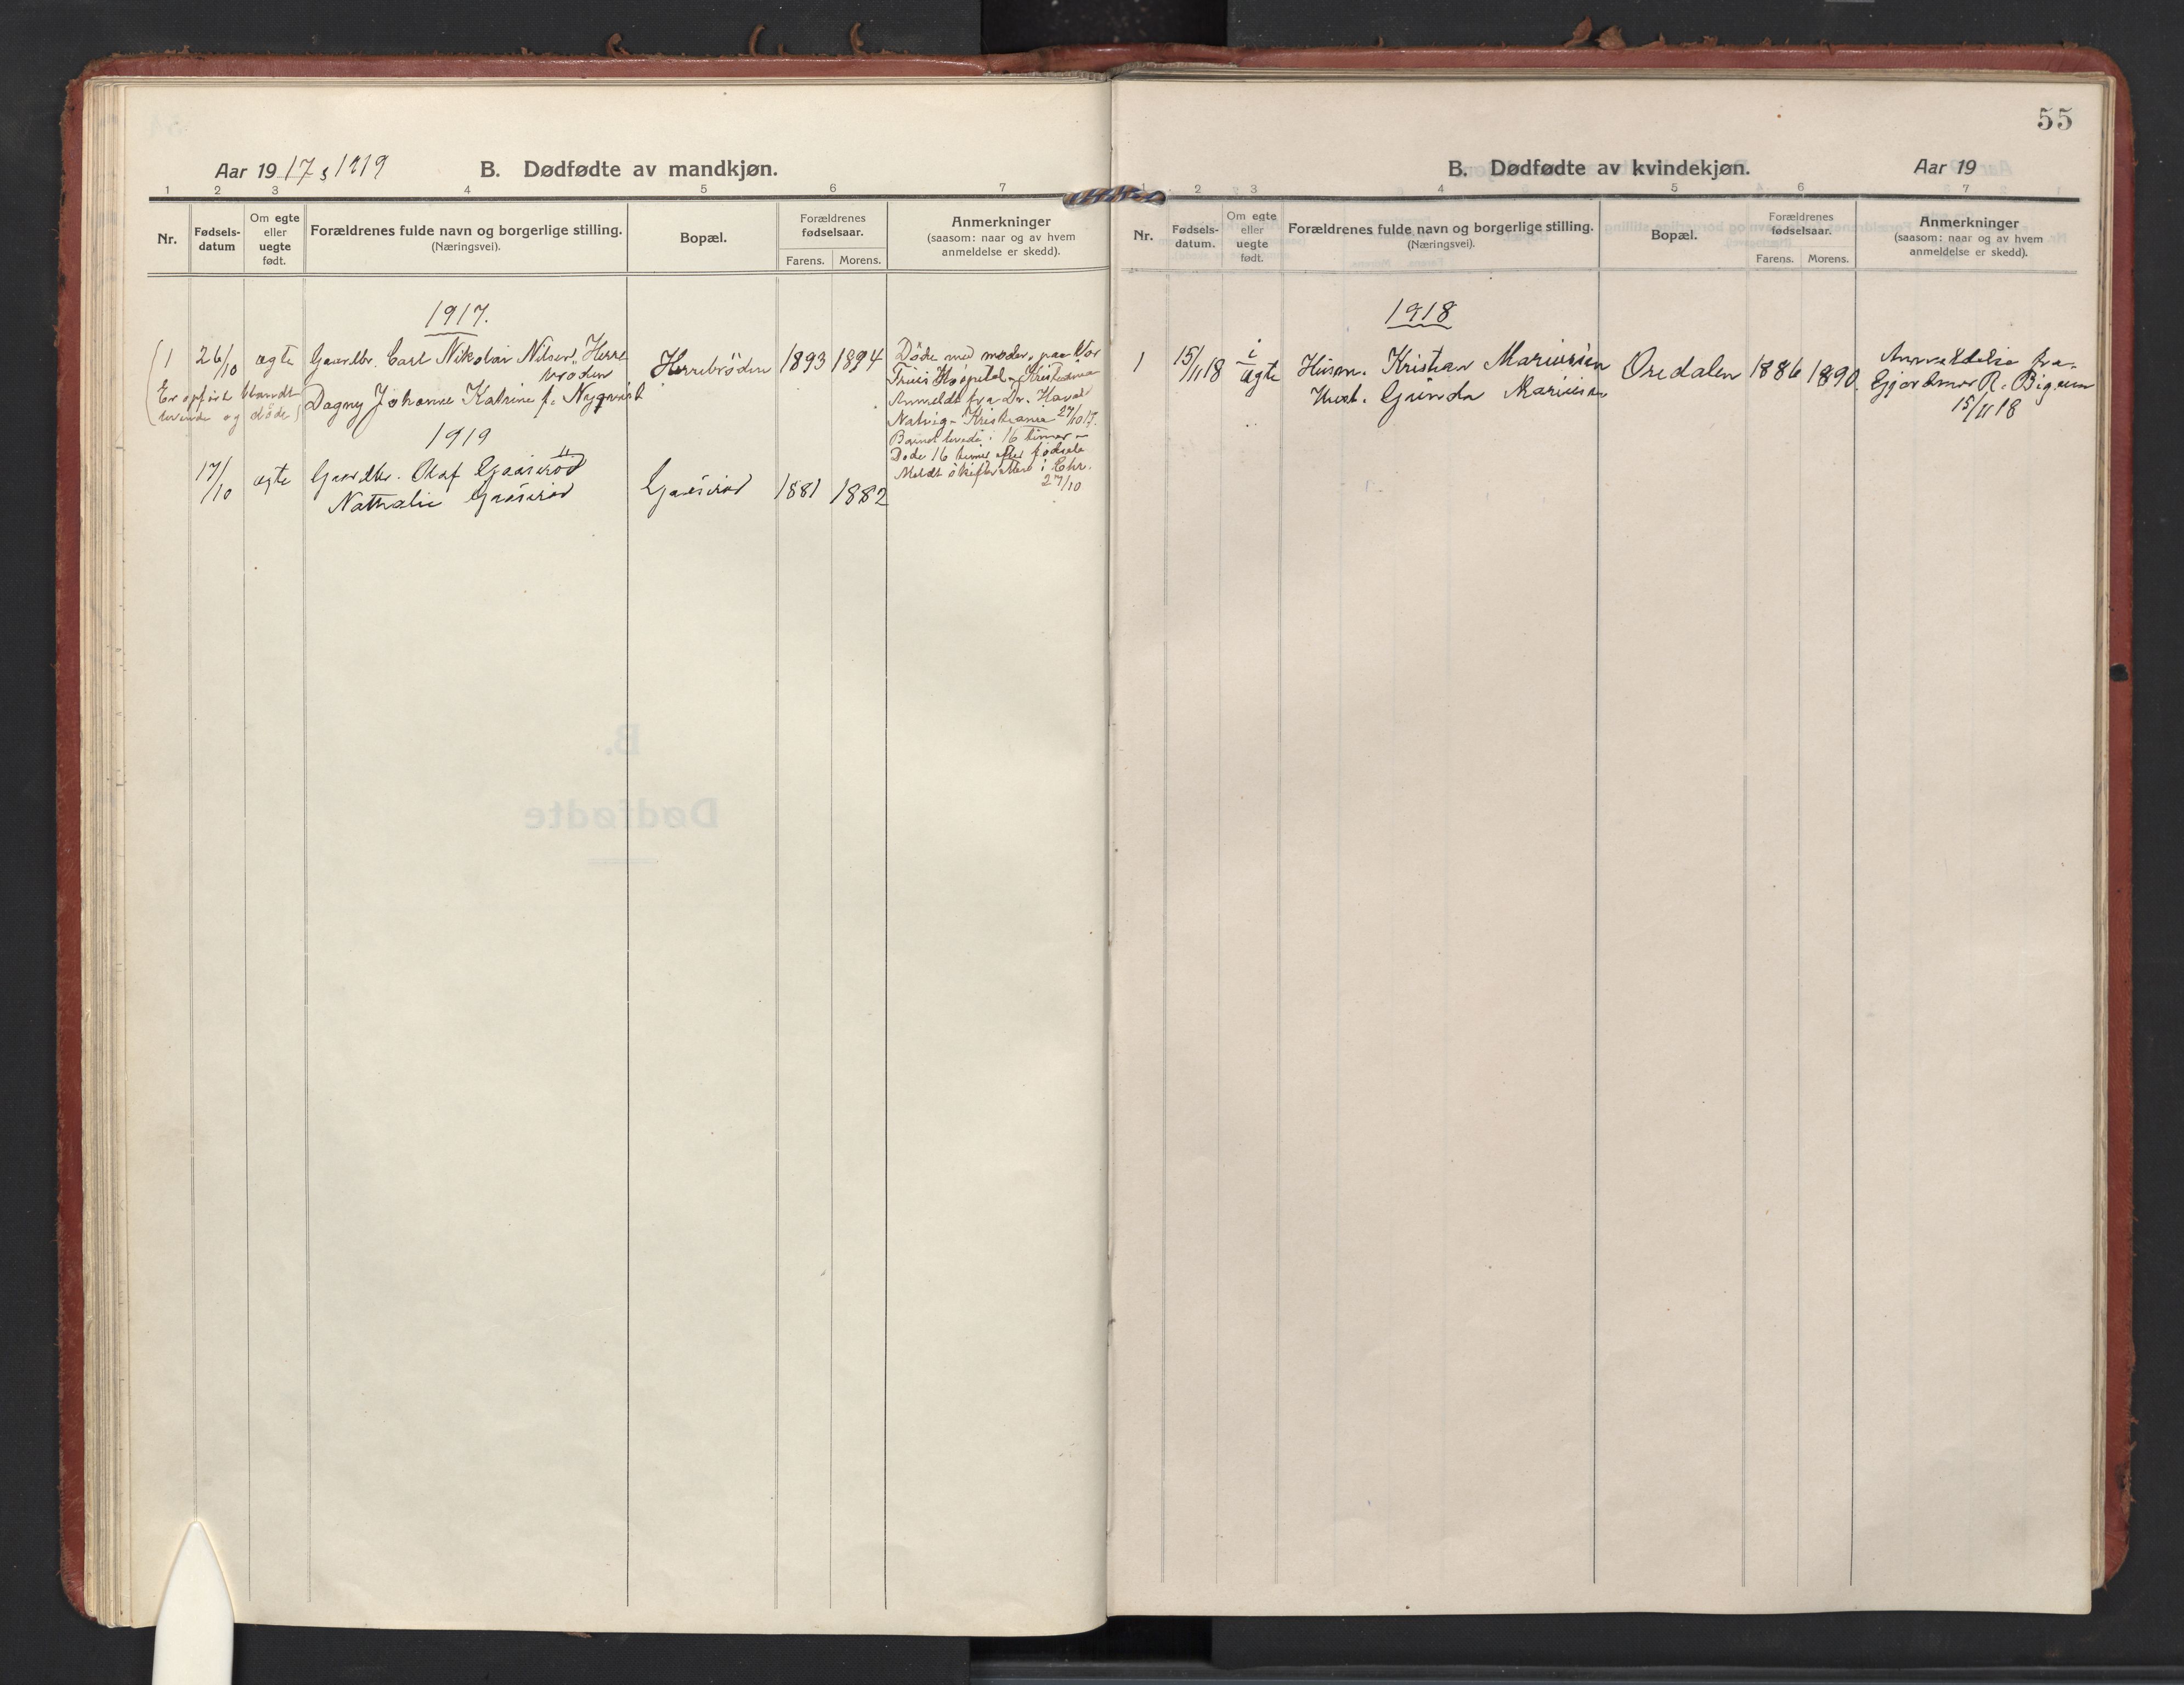 55
Aar 1917, 1919
B. Dødfødte av mandkjøn.
1 2 3 4 5 6 7
Nr.
Fødsels-
datum
Om egte
eller
uegte
født.
Forældrenes fulde navn og borgerlige stilling.
(Næringsvei).
Bopæl.
Forældrenes
fødselsaar.
Farens. Morens.
Anmerkninger
(saasom: naar og av hvem
anmeldelse er skedd).
1917.
1 26/10 ægte Gaardbr. Carl Nikolai Nilsen, Herre
brøden
Dagny Johanne Katrine f.
Herrebröden 1893 1894
Er opført blandt
levende og døde
Døde med moder, paa Vor
Frues Hospital - Kristiania
Anmeldt fra Dr.
Natvig - Kristiania 27/10 17.
Barnet levede i 16 timer -
Døde 16 timer efter fødsela
Meldt skifteretten i Chr.
27/10
1919
17/10 ægte Gaardbr. Olaf Gaaseröd
Nathalie Gaaseröd
Gaaseröd 1881 1882
B. Dødfødte av kvindekjøn.
Aar 19
2 3 4 5 6 7
Nr.
Fødsels-
datum.
Om egte
eller
uegte
født.
Forældrenes fulde navn og borgerlige stilling.
(Næringsvei).
Bopæl.
Forældrenes
fødselsaar.
Farens. Morens.
Anmerkninger
(saasom: naar og av hvem
anmeldelse er skedd).
1918
1 15/11 18 i
ægte
Husm. Kristian Mariusen
Hust. Gunda Mariusen
Oredalen 1886 1890.
Anmeldelse fra
R. Bigum
15/11 18
B.
Dødfødte